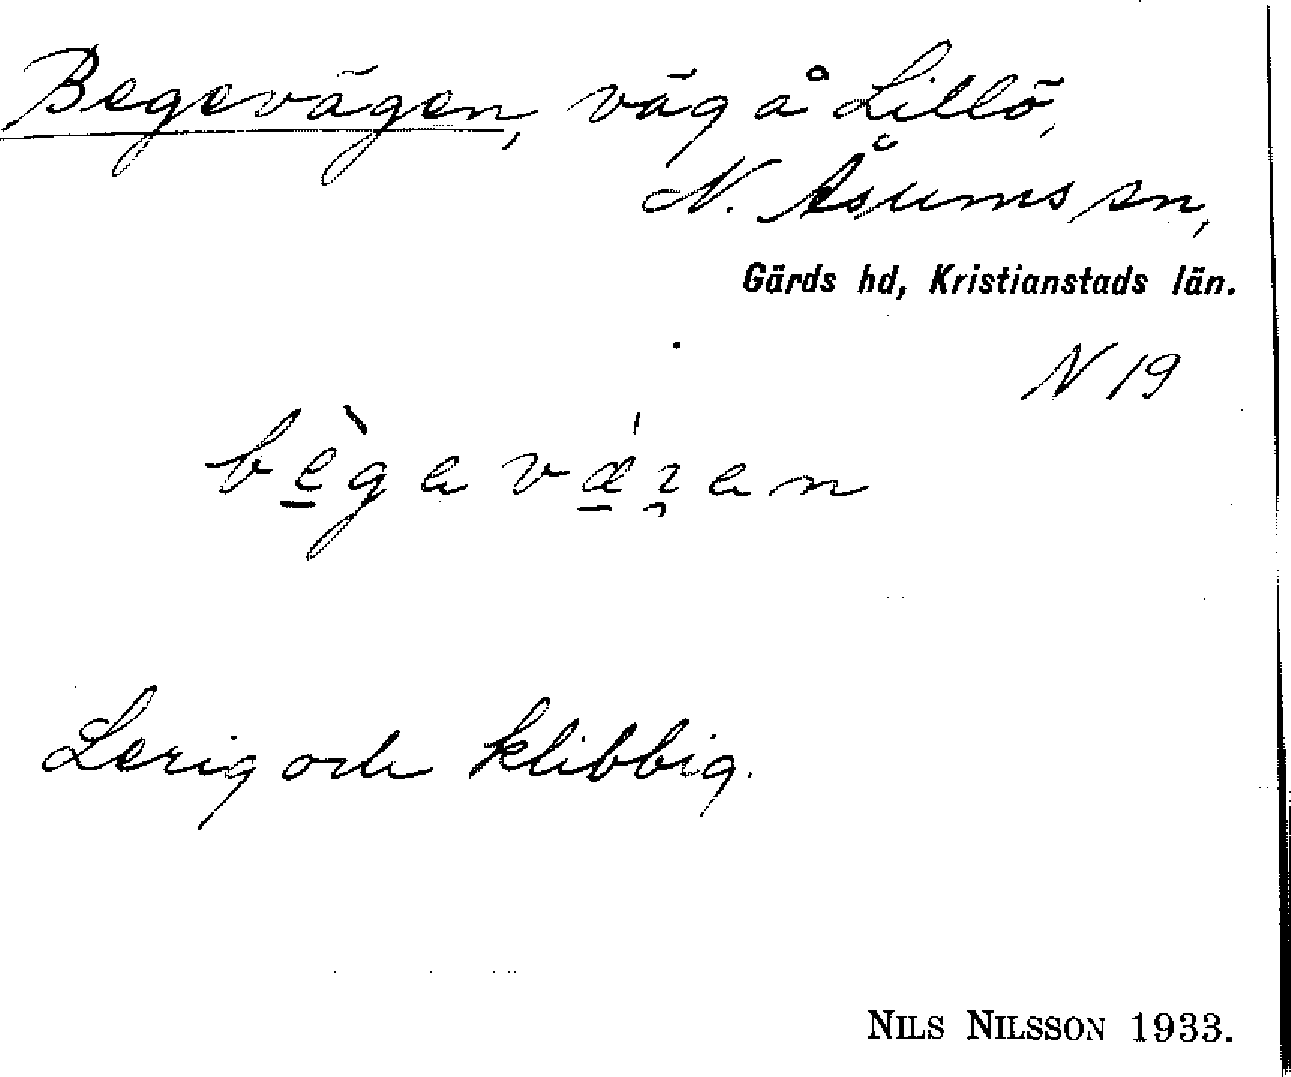 Begevägen, väg å Lillö,
N. Åsums sn,
Gärds hd, Kristianstads län.
N 19
Lerig och klibbig.
NILS NILSSON 1933.